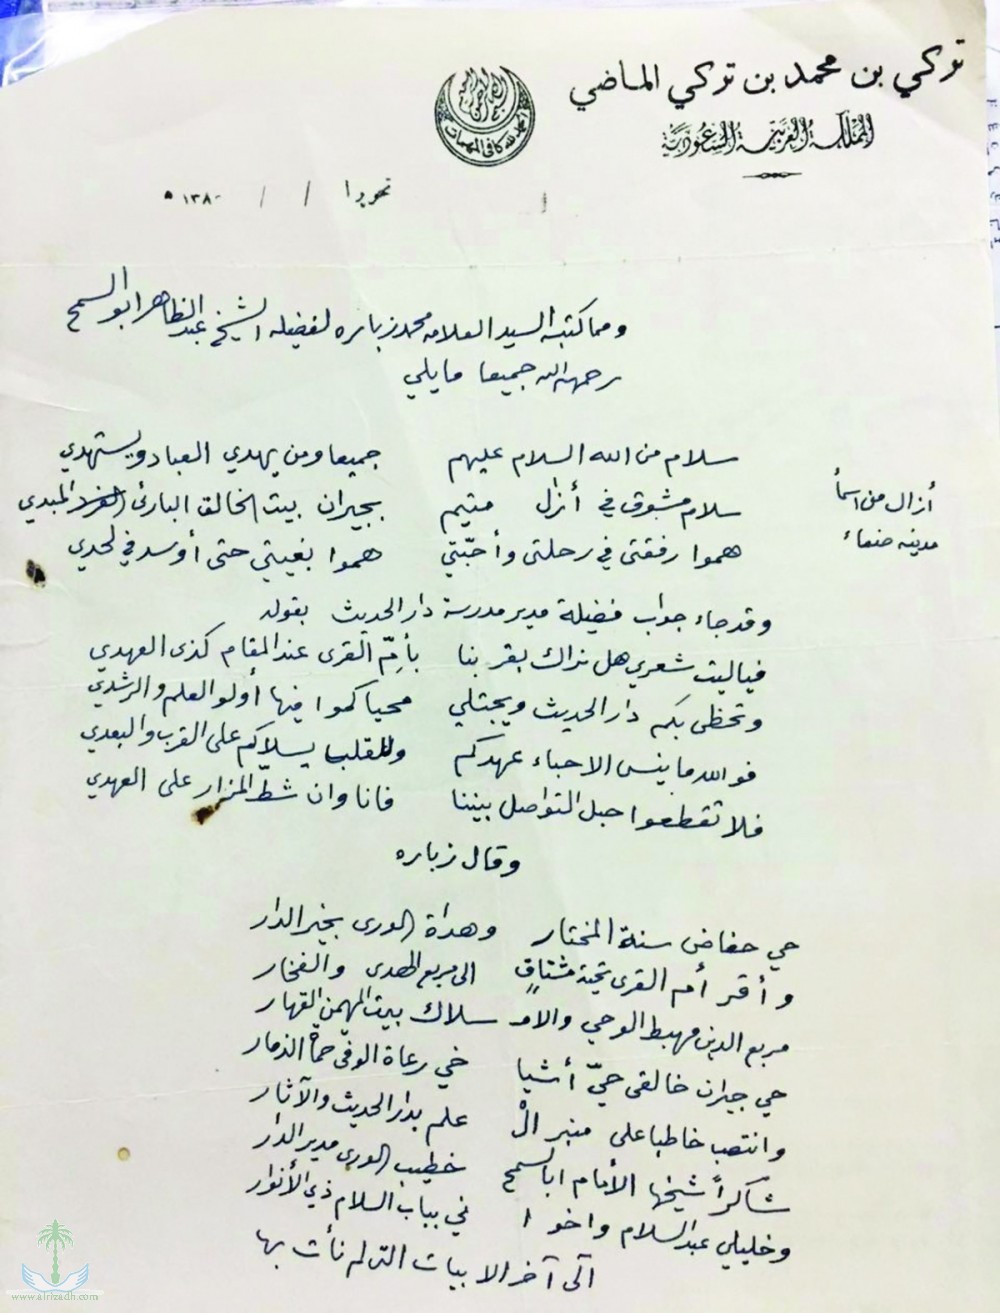 تركي بن محمد بن تركي الماضي
المملكة العربية السعودية
الحمد لله كافي المهمات
تحريرا / / ١٣٨٠ ه
ومما كتبه السيد العلامه محمد زباره لفضيله الشيخ عبد الظاهر ابو السمح
رحمهم الله جميعا مايلي
سلام من الله السلام عليهم جميعا ومن يهدي العباد ويستهدي
سلام مشوق في أزال متيم بجيران بيت الخالق البارئ الفرد المبدي
أزال من اسمأ
مدينه صنعاء
هموا رفقتي في رحلتي وأحبّتي هموا بغيتي حتى أوسد في لحدي
وقد جاء جواب فضيلة مدير مدرسة دار الحديث بقوله
فياليت شعري هل نراك بقربنا بأمّ القرى عند المقام كذى العهدي
وتحظى بكم دار الحديث ويجتلي محياكموا فيها أولو العلم والرشدي
فوالله ما ينس الاحباء عهدكم وللقلب يسلاكم على القرب والبعدي
فلا تقطعوا حبل التواصل بيننا فانا وان شطّ المزار على العهدي
وقال زباره
حي حفاض سنة المختار وهداة الورى بخير الدار
وأقر أم القرى تحية مشتاقٍ الى مربع الهدى والفخار
مربع الدين مهبط الوحي والامـ سلاك بيت المهيمن القهار
حي جيران خالقي حيّ أشيا خي رعاة الوفى حماة الذمار
وانتصب خاطبا على منبر الْ علم بدار الحديث والآثار
شاكراً شيخها الأمام ابا السمح خطيب الورى مدير الدار
وخليلي عبد السلام واخوا ني بباب السلام ذي الأنوار
آلى آخر الابيات التي لم نأت بها
www.alrizadh.com